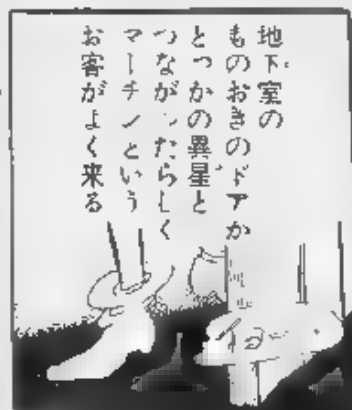 地下室の
ものおきのドアが
どっかの異星と
つながったらしく
マーチンという
お客がよく来る